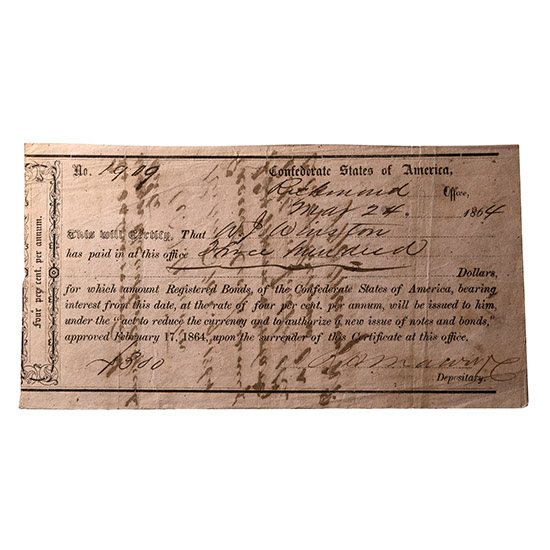 Four per cent. per annum.
No. 1909 Confederate States of America,
Richmond Office,
Mar 24 1864
This will Certify, That W J Winston
has paid in at this office Three hundred
Dollars,
for which amount Registered Bonds, of the Confederate States of America, bearing
interest from this date, at the rate of four per cent. per annum, will be issued to him,
under the "act to reduce the currency and to authorize a new issue of notes and bonds,"
approved February 17, 1864, upon the surrender of this Certificate at this office.
$300
Depositary.